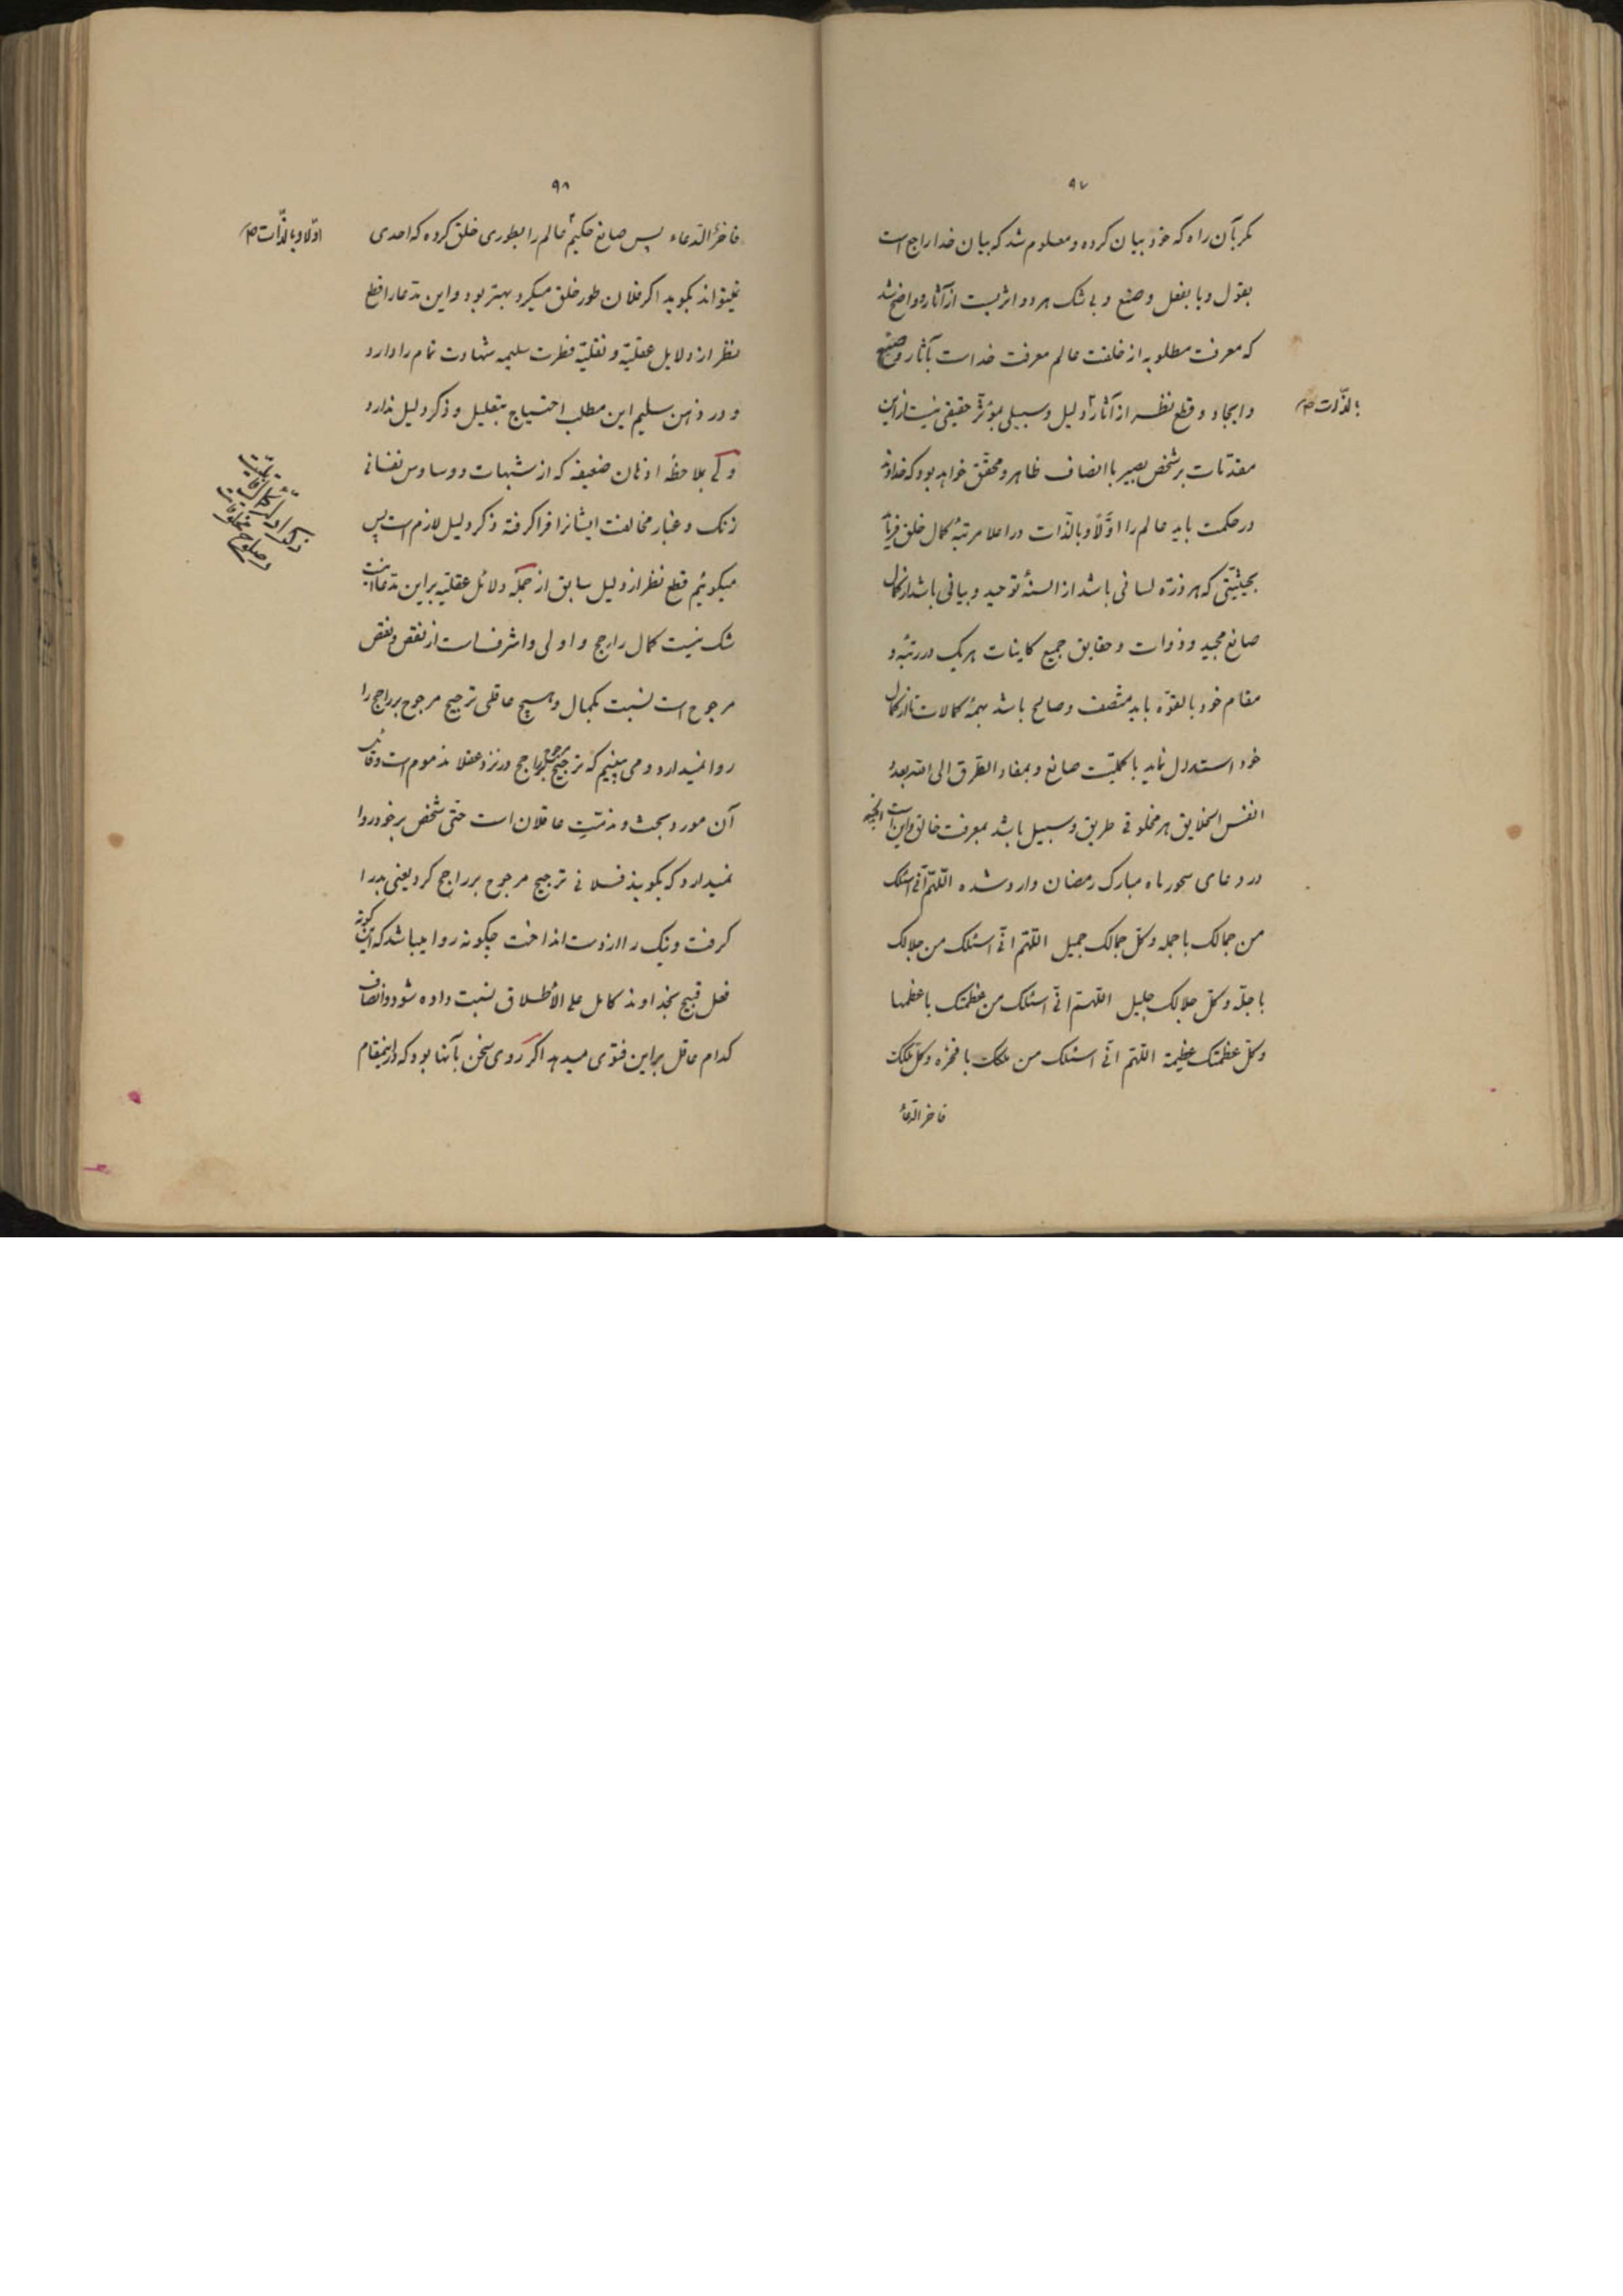 ۹۷
مگر بآن راه که خود بیان کرده و معلوم شد که بیان خدا راجع است
بقول و یا بفعل و صنع و بی شک هر دو اثریست از آثار او واضح شد
که معرفت مطلوبه از خلقت عالم معرفت خداست بآثار و صنع
و ایجاد و قطع نظر از آثار دلیل و سبیلی بمؤثر حقیقی نیست از این
بالذّات صح
مقدّمات بر شخص بصیر با انصاف ظاهر و محقّق خواهد بود که خداوند
در حکمت باید عالم را اوّلاً و بالذّات در اعلا مرتبهٔ کمال خلق فرماید
بحیثیّتی که هر ذرّه لسانی باشد از السنهٔ توحید و بیانی باشد از کمال
صانع مجید و ذوات و حقایق جمیع کاینات هر یک در رتبه و
مقام خود بالقوّه باید متّصف و صالح باشد بهمهٔ کمالات تا از کمال
خود استدلال نماید باکملیّت صانع و بمفاد الطّرق الی الله بعدد
انفس الخلایق هر مخلوقی طریق و سبیل باشد بمعرفت خالق و این است
در دعای سحور ماه مبارک رمضان وارد شده اللّهمّ انّی اسئلک
من جمالک باجمله و کلّ جمالک جمیل اللّهمّ انّی اسئلک من جلالک
باجلّه و کلّ جلالک جلیل اللّهمّ انّی اسئلک من عظمتک باعظمها
و کلّ عظمتک عظیمة اللّهمّ انّی اسئلک من ملکک بافخره و کلّ ملکک
فاخر الدّعاء
۹۸
فاخر الدّعاء پس صانع حکیم عالم را بطوری خلق کرده که احدی
اوّلاً و بالذّات صح
نمیتواند بگوید اگر فلان طور خلق میکرد بهتر بود و این مدّعا را قطع
نظر از دلایل عقلیّه و نقلیّه فطرت سلیمه شهادت تمام را دارد
و در ذهن سلیم این مطلب احتیاج بتعلیل و ذکر دلیل ندارد
ولی بملاحظهٔ اذهان ضعیفه که از شبهات و وساوس نفسانی
زنک و غبار مخالفت ایشانرا فرا کرفته ذکر دلیل لازم است پس
میکوئیم قطع نظر از دلیل سابق از جمله دلائل عقلیّه بر این مدّعا اینست
شک نیست کمال راجح و اولی و اشرف است از نقص و نقص
مرجوح است نسبت بکمال و هیچ عاقلی ترجیح مرجوح بر راجح را
روا نمیدارد و می بینیم که ترجیح مرجوح بر راجح در نزد عقلا مذموم است و فاعل
آن مورد بحث و مذمّت عاقلان است حتّی شخص بر خود روا
نمیدارد که بگویند فلانی ترجیح مرجوح بر راجح کرد یعنی بد را
کرفت و نیک را از دست انداخت چکونه روا میباشد که این کونه
فعل قبیح بخداوند کامل علی الأطلاق نسبت داده شود و انصاف
کدام عاقل بر این فتوی میدهد اکر روی سخن با آنها بود که در اینمقام